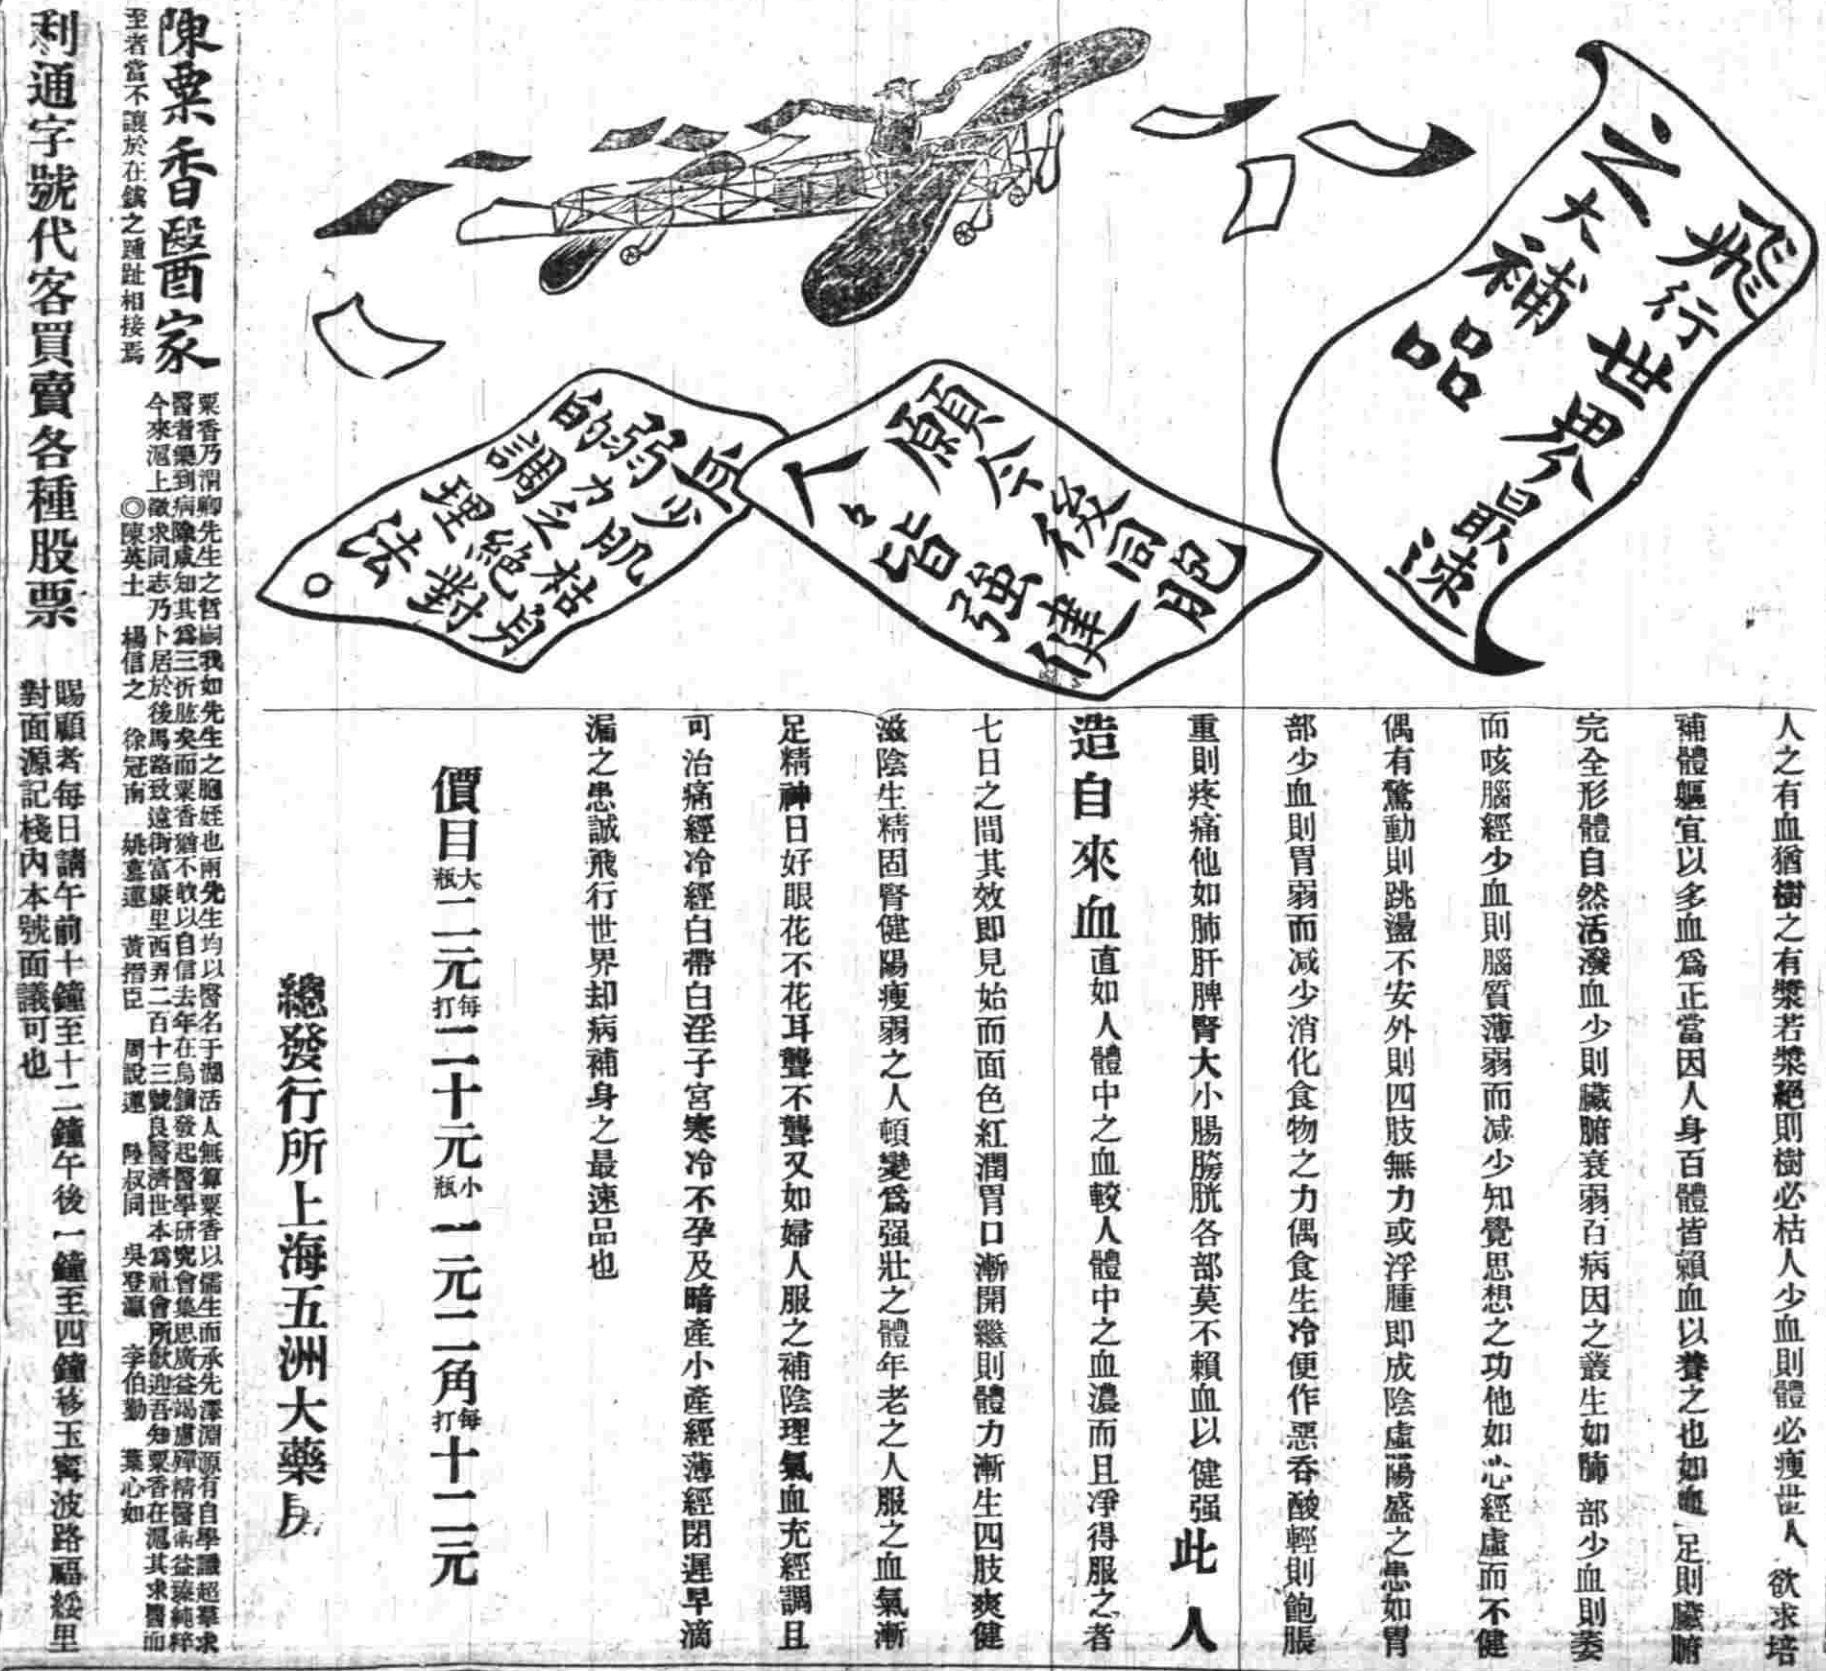 飛行世界最速
之大補品
願今後同胞
人皆強健
身
少肌枯身
弱力之絕對
的調理法
人之有血猶樹之有漿若漿絕則樹必枯人少血則體必瘦世人欲求培
補體軀宜以多血爲正當因人身百體皆賴血以養之也如血足則臟腑
完全形體自然活潑血少則臟腑衰弱百病因之叢生如肺部少血則萎
而咳腦經少血則腦質薄弱而減少知覺思想之功他如心經虛而不健
偶有驚動則跳盪不安外則四肢無力或浮腫即成陰虛陽盛之患如胃
部少血則胃弱而減少消化食物之力偶食生冷便作惡吞酸輕則飽脹
重則疼痛他如肺肝脾腎大小腸膀胱各部莫不賴血以健强此人
造自來血直如人體中之血較人體中之血濃而且淨得服之者
七日之間其效即見始而面色紅潤胃口漸開繼則體力漸生四肢爽健
滋陰生精固腎健陽瘦弱之人頓變爲强壯之體年老之人服之血氣漸
足精神日好眼花不花耳聾不聾又如婦人服之補陰理氣血充經調且
可治痛經冷經白帶白淫子宮寒冷不孕及暗產小產經薄經閉遲早滴
漏之患誠飛行世界却病補身之最速品也
價目大瓶二元每打二十元小瓶一元二角每打十二元
總發行所上海五洲大藥房
陳粟香醫家
粟香乃渭卿先生之哲嗣我如先生之胞姪也兩先生均以醫名于湖活人無算粟香以儒生而承先澤淵源有自學識超羣求
醫者樂到病除咸知其爲三折肱矣而粟香猶不敢以自信去年在烏鎮發起醫學研究會集思廣益竭慮殫精醫術益臻純粹
今來滬上徵求同志乃卜居於後馬路致遠街富康里西弄二百十三號良醫濟世本爲社會所歡迎吾知粟香在滬其求醫而
至者當不讓於在鎮之踵趾相接焉
◎陳英士 楊信之 徐冠南 姚慕蓮 黃搢臣 周說蓮 陸叔同 吳登瀛 李伯勤 葉心如
利通字號代客買賣各種股票
賜顧者每日請午前十鐘至十二鐘午後一鐘至四鐘移玉甯波路福綏里
對面源記棧內本號面議可也